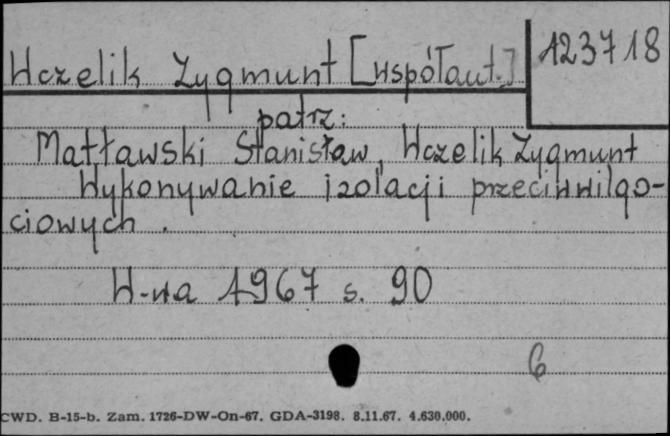 Wczelik Zygmunt [współaut.]
123718
patrz:
Matławski Stanisław, Wczelik Zygmunt
Wykonywanie izolacji przeciwwilgo-
ciowych.
W-wa 1967 s. 90
6
CWD. B-15-b. Zam. 1726-DW-On-67. GDA-3198. 8.11.67. 4.630.000.